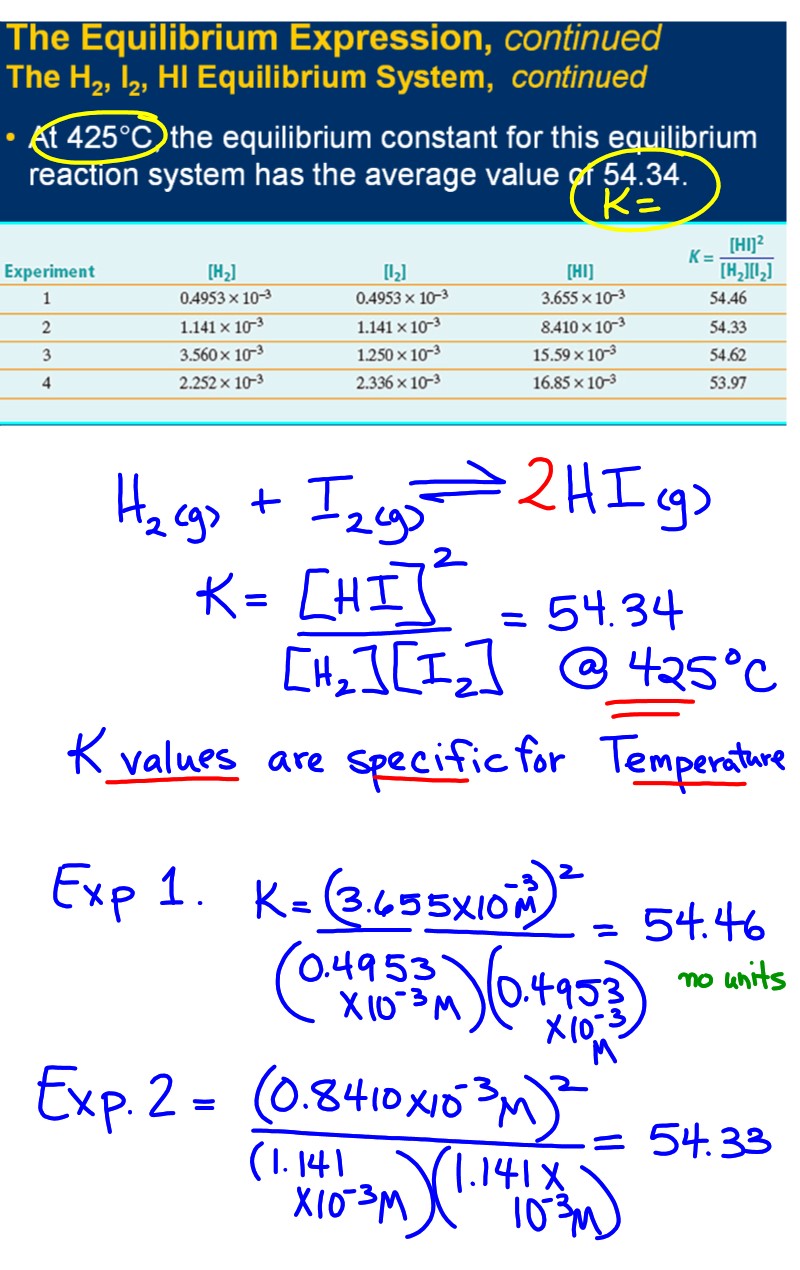 The Equilibrium Expression, continued
The H₂, I₂, HI Equilibrium System, continued
• At 425°C, the equilibrium constant for this equilibrium
reaction system has the average value of 54.34.
K =
Experiment [H₂] [I₂] [HI] K = [HI]² / [H₂][I₂]
1 0.4953 × 10⁻³ 0.4953 × 10⁻³ 3.655 × 10⁻³ 54.46
2 1.141 × 10⁻³ 1.141 × 10⁻³ 8.410 × 10⁻³ 54.33
3 3.560 × 10⁻³ 1.250 × 10⁻³ 15.59 × 10⁻³ 54.62
4 2.252 × 10⁻³ 2.336 × 10⁻³ 16.85 × 10⁻³ 53.97
H₂(g) + I₂(g) ⇌ 2HI(g)
K = [HI]² / [H₂][I₂] = 54.34
@ 425°C
K values are specific for Temperature
Exp 1. K = (3.655X10⁻³M)² / (0.4953 X10⁻³M)(0.4953 X10⁻³ M) = 54.46
no units
Exp. 2 = (0.8410X10⁻³M)² / (1.141 X10⁻³M)(1.141 X 10⁻³M) = 54.33